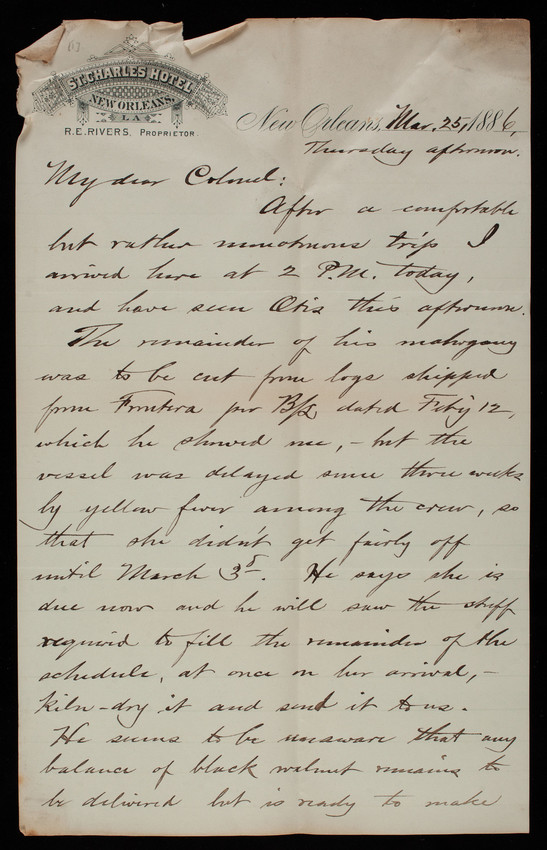 ST. CHARLES HOTEL
NEW ORLEANS,
LA
R. E. RIVERS. PROPRIETOR.
New Orleans, Mar. 25, 1886,
Thursday afternoon.
My dear Colonel:
After a comfortable
but rather monotonous trip I
arrived here at 2 P.M. today,
and have seen Otis this afternoon.
The remainder of his mahogany
was to be cut from logs shipped
from Frontera per B/L dated Feb'y 12,
which he showed me, - but the
vessel was delayed some three weeks
by yellow fever among the crew, so
that she didn't get fairly off
until March 3d. He says she is
due now and he will saw the stuff
required to fill the remainder of the
schedule, at once on her arrival, -
kiln-dry it and send it to us.
He seems to be unaware that any
balance of black walnut remains to
be delivered but is ready to make